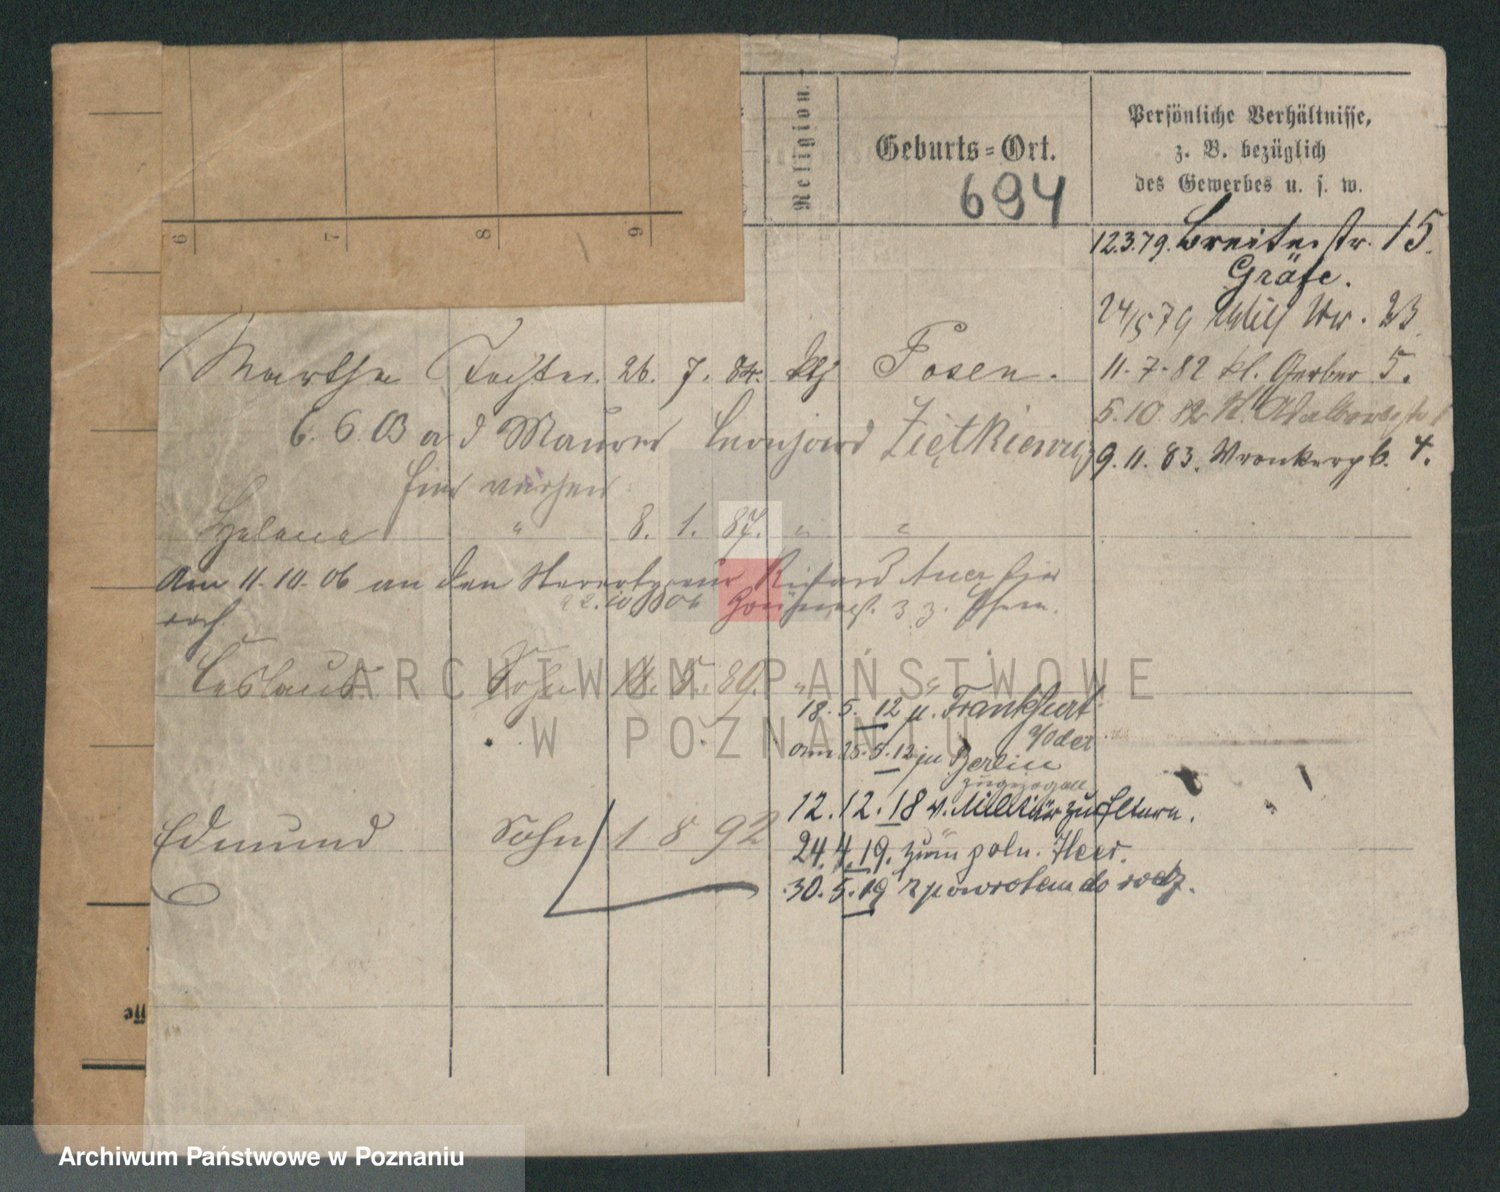 6 7 8 9
Religion.
Geburts=Ort.
694
Persönliche Verhältnisse,
z. B. bezüglich
des Gewerbes u. s. w.
12.3.79. Breitestr. 15.
Gräfe.
24/5 79 Wr. 23
11. 7. 82 kl. Gerber 5.
5. 10. 82
9. 11. 83. Wronkerpl. 4.
Martha Tochter 26. 7. 84. kth Posen.
6. 6. 03 a d Maurer Leonhard Ziętkiewicz
hier
Helena " 8. 1. 87. " "
Am 11. 10. 06 an den Richard Auer hier
Ceslaus Sohn 18. 5. 89. " "
18. 5. 12 n. Frankfurt
a/Oder
am 25. 5. 12 zu Berlin
zugezogen
Edmund Sohn 1 8 92
12. 12. 18 v. Militär zu Eltern.
24. 4. 19. zum poln. Heer.
30. 5. 19 z powrotem do rodz.
ARCHIWUM PAŃSTWOWE
W POZNANIU
Archiwum Państwowe w Poznaniu